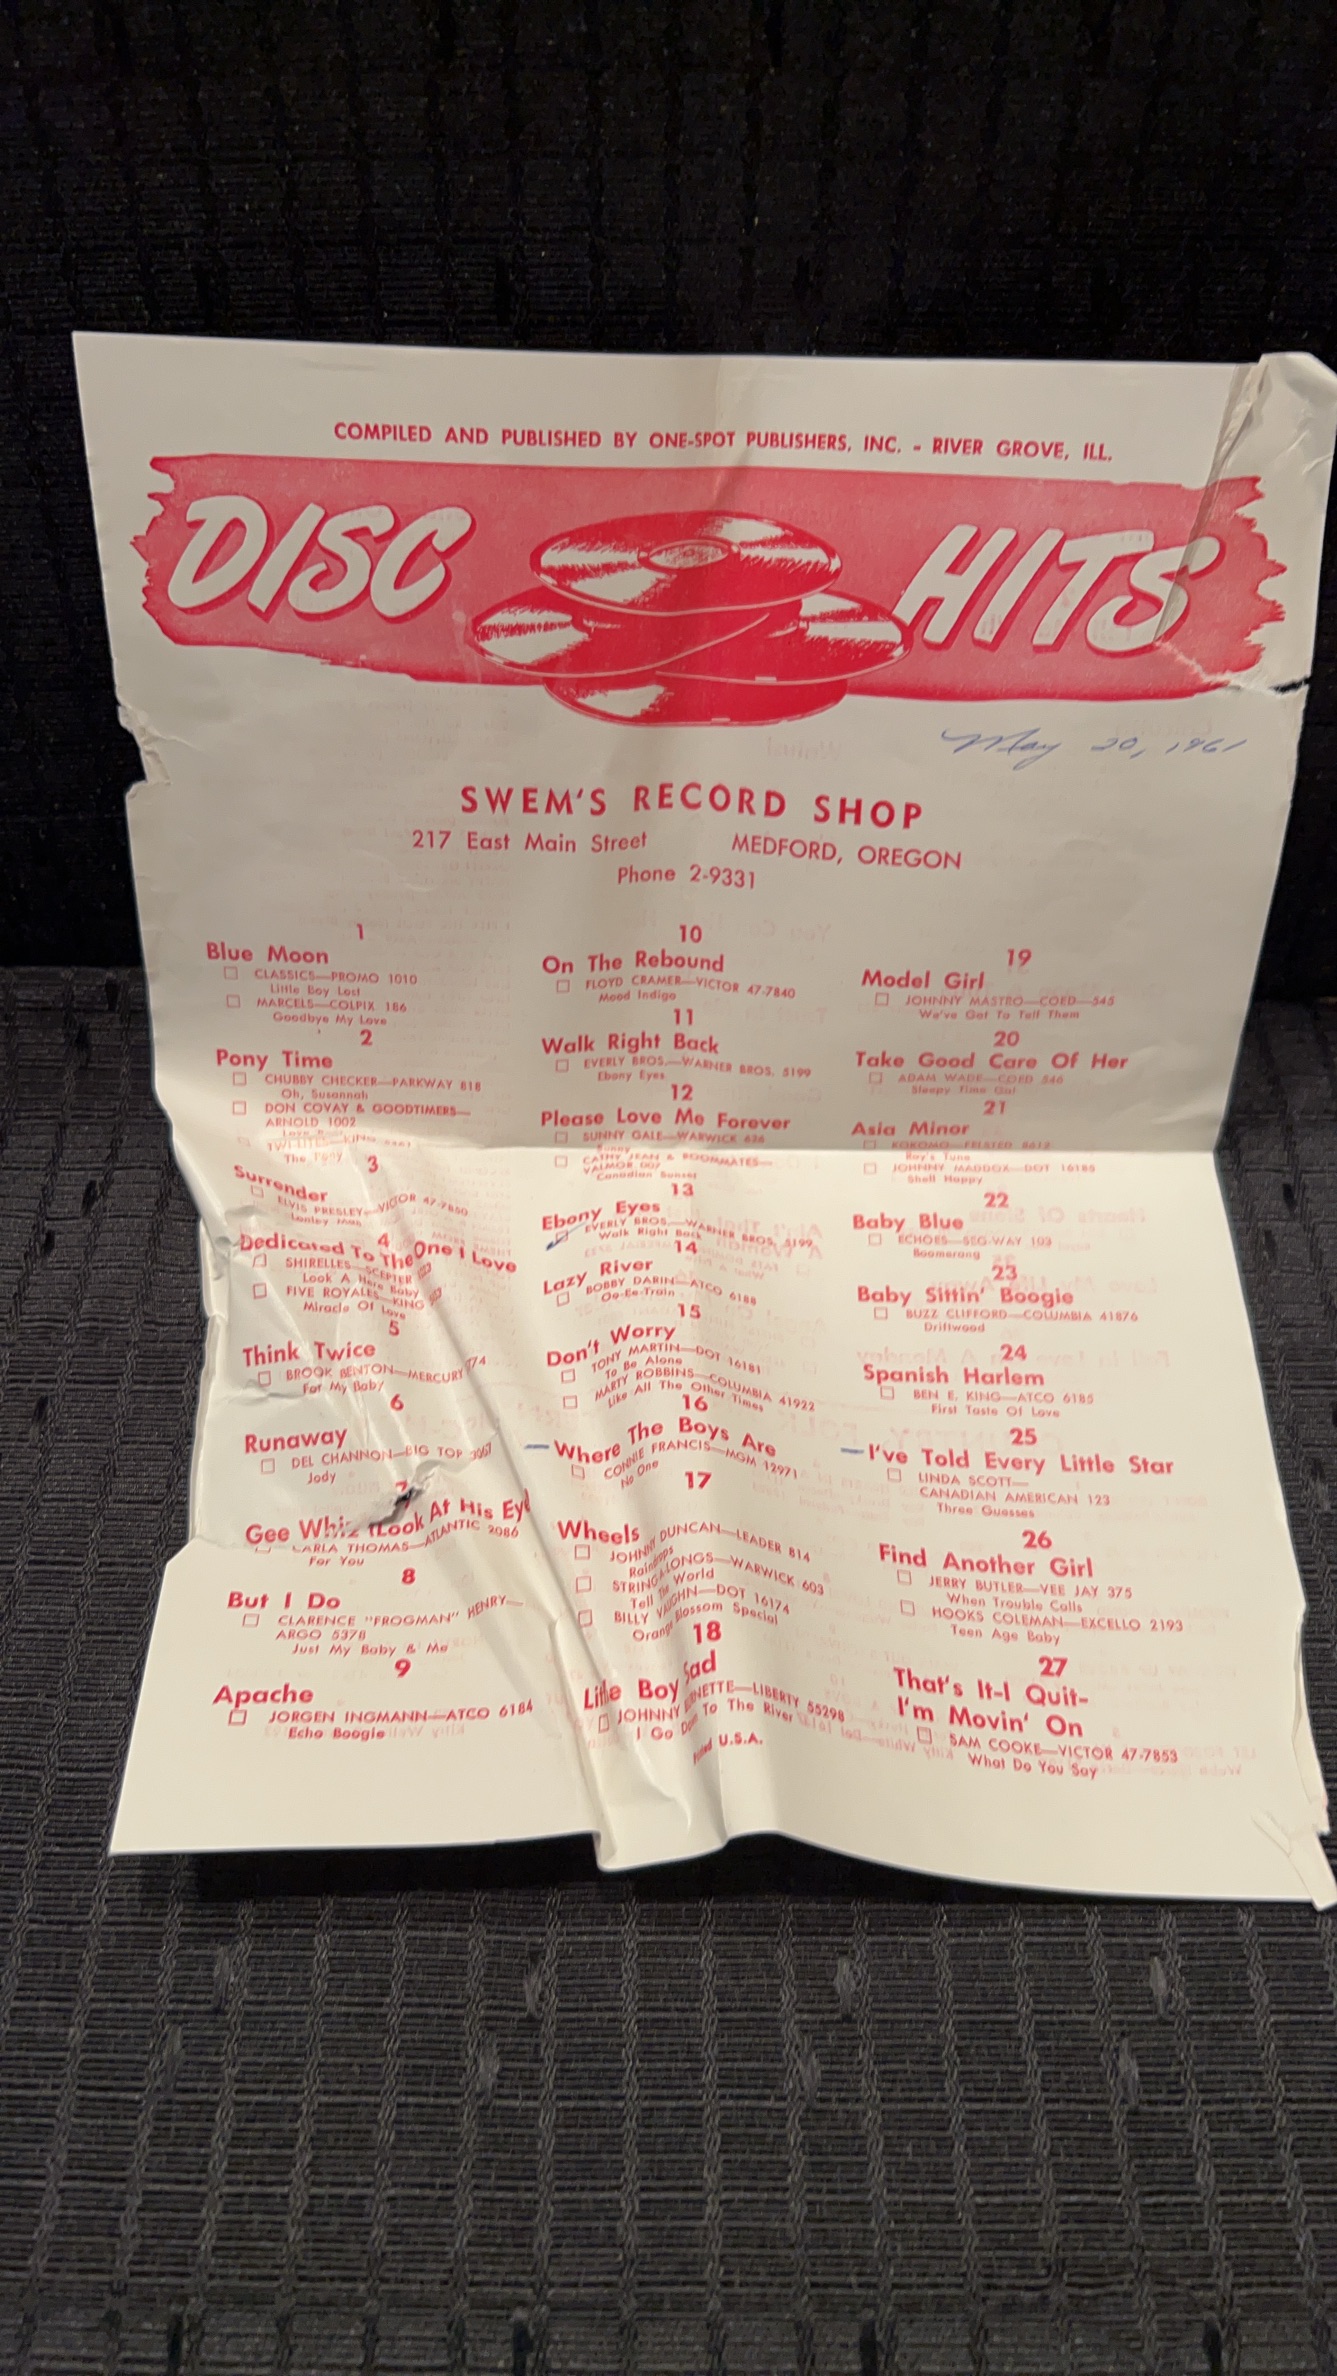 COMPILED AND PUBLISHED BY ONE-SPOT PUBLISHERS, INC. - RIVER GROVE, ILL.
DISC HITS
May 20, 1961
SWEM'S RECORD SHOP
217 East Main Street MEDFORD, OREGON
Phone 2-9331
1
Blue Moon
CLASSICS—PROMO 1010
Little Boy Lost
MARCELS—COLPIX 186
Goodbye My Love
2
Pony Time
CHUBBY CHECKER—PARKWAY 818
Oh, Susannah
DON COVAY & GOODTIMERS—
ARNOLD 1002
Love Boat
KING
The Pony
3
Surrender
ELVIS PRESLEY—VICTOR 47-7850
Lonley Man
4
Dedicated To The One I Love
SHIRELLES—SCEPTER
Look A Here Baby
FIVE ROYALES—KING
Miracle Of Love
5
Think Twice
BROOK BENTON—MERCURY
For My Baby
6
Runaway
DEL CHANNON—BIG TOP 3067
Jody
7
Gee Whiz (Look At His Eye
CARLA THOMAS—ATLANTIC 2086
For You
8
But I Do
CLARENCE "FROGMAN" HENRY—
ARGO 5378
Just My Baby & Me
9
Apache
JORGEN INGMANN—ATCO 6184
Echo Boogie
10
On The Rebound
FLOYD CRAMER—VICTOR 47-7840
Mood Indigo
11
Walk Right Back
EVERLY BROS.—WARNER BROS. 5199
Ebony Eyes
12
Please Love Me Forever
SUNNY GALE—WARWICK 626
Sunny
CATHY JEAN & ROOMMATES—
VALMOR 007
Canadian Sunset
13
Ebony Eyes
EVERLY BROS.—WARNER BROS. 5199
Walk Right Back
14
Lazy River
BOBBY DARIN—ATCO 6188
Oo-Ee-Train
15
Don't Worry
TONY MARTIN—DOT 16181
To Be Alone
MARTY ROBBINS—COLUMBIA 41922
Like All The Other Times
16
Where The Boys Are
CONNIE FRANCIS—MGM 12971
No One
17
Wheels
JOHNNY DUNCAN—LEADER 814
Raindrops
STRINGALONGS—WARWICK 603
Tell The World
BILLY VAUGHN—DOT 16174
Orange Blossom Special
18
Little Boy Sad
JOHNNY BURNETTE—LIBERTY 55298
I Go Down To The River
Printed U.S.A.
19
Model Girl
JOHNNY MASTRO—COED—545
We've Got To Tell Them
20
Take Good Care Of Her
ADAM WADE—COED 546
Sleepy Time Gal
21
Asia Minor
KOKOMO—FELSTED 8612
Roy's Tune
JOHNNY MADDOX—DOT 16185
Shell Happy
22
Baby Blue
ECHOES—SEG-WAY 103
Boomerang
23
Baby Sittin' Boogie
BUZZ CLIFFORD—COLUMBIA 41876
Driftwood
24
Spanish Harlem
BEN E. KING—ATCO 6185
First Taste Of Love
25
I've Told Every Little Star
LINDA SCOTT—
CANADIAN AMERICAN 123
Three Guesses
26
Find Another Girl
JERRY BUTLER—VEE JAY 375
When Trouble Calls
HOOKS COLEMAN—EXCELLO 2193
Teen Age Baby
27
That's It-I Quit-
I'm Movin' On
SAM COOKE—VICTOR 47-7853
What Do You Say